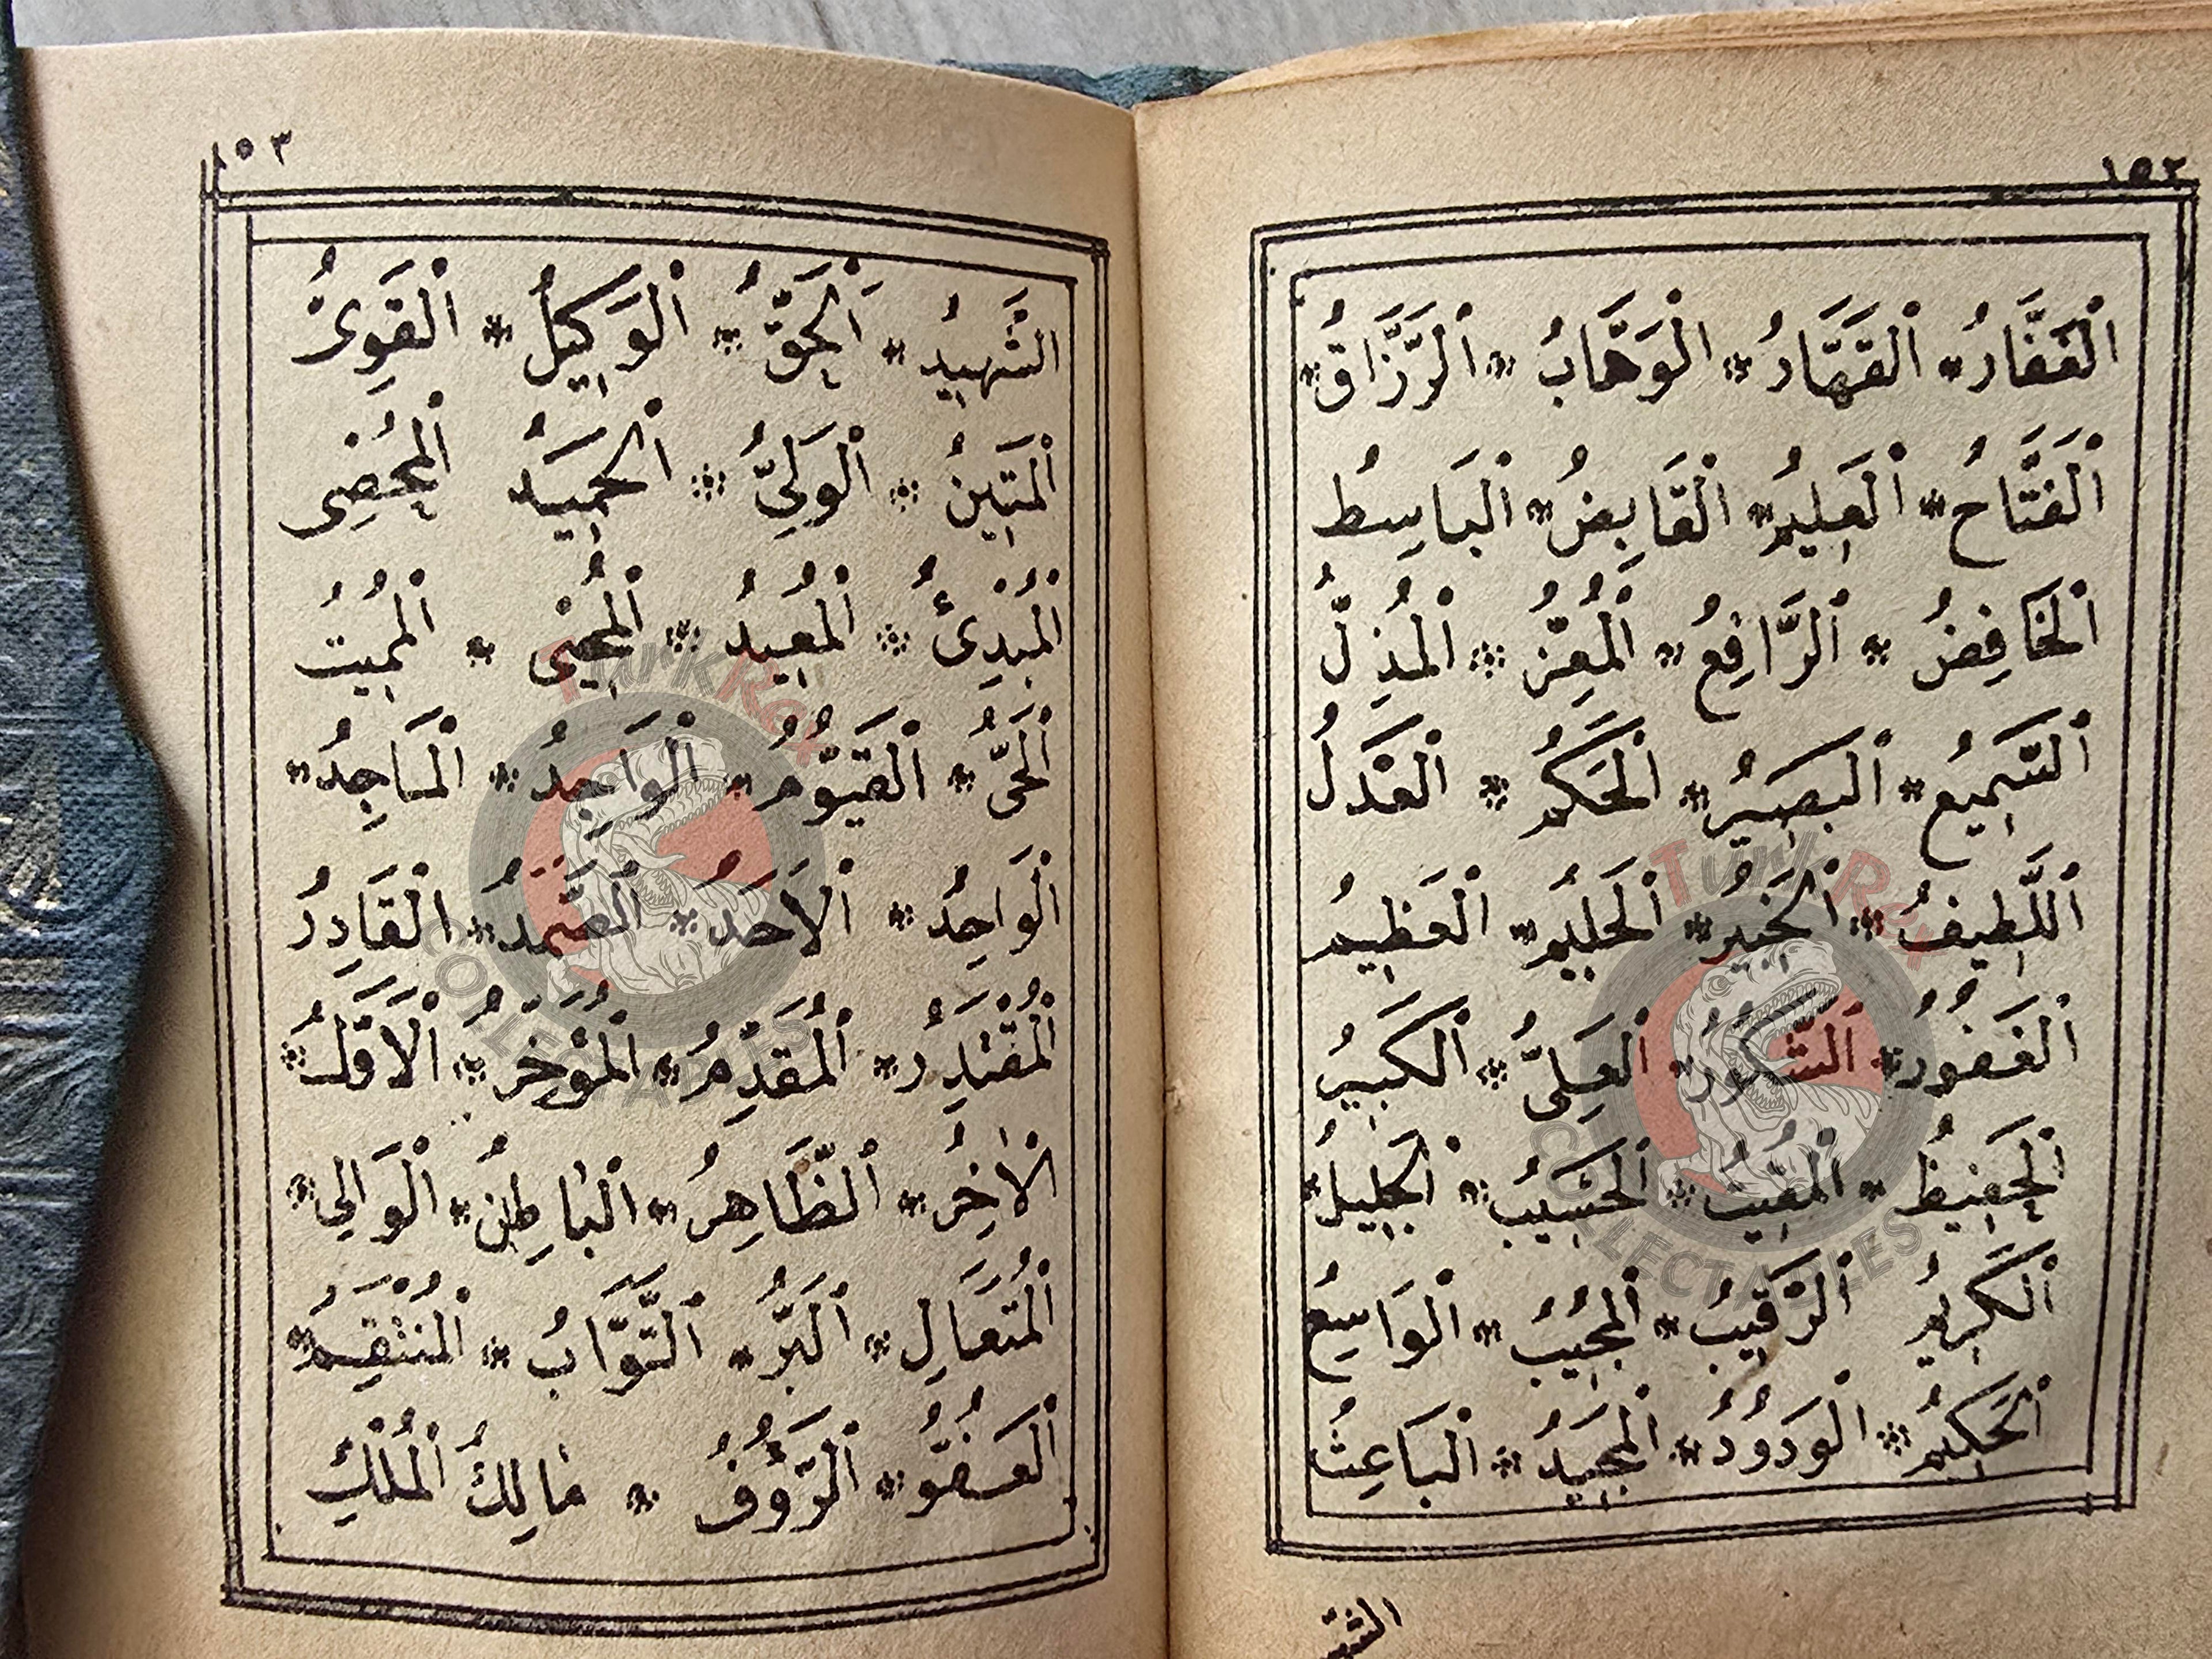 ١٥٢
اَلْغَفَّارُ اَلْقَهَّارُ اَلْوَهَّابُ اَلرَّزَّاقُ
اَلْفَتَّاحُ اَلْعَلِيمُ اَلْقَابِضُ اَلْبَاسِطُ
اَلْخَافِضُ اَلرَّافِعُ اَلْمُعِزُّ اَلْمُذِلُّ
اَلسَّمِيعُ اَلْبَصِيرُ اَلْحَكَمُ اَلْعَدْلُ
اَللَّطِيفُ اَلْخَبِيرُ اَلْحَلِيمُ اَلْعَظِيمُ
اَلْغَفُورُ اَلشَّكُورُ اَلْعَلِىُّ اَلْكَبِيرُ
اَلْحَفِيظُ اَلْمُقِيتُ اَلْحَسِيبُ اَلْجَلِيلُ
اَلْكَرِيمُ اَلرَّقِيبُ اَلْمُجِيبُ اَلْوَاسِعُ
اَلْحَكِيمُ اَلْوَدُودُ اَلْمَجِيدُ اَلْبَاعِثُ
الشهيد
١٥٣
اَلشَّهِيدُ اَلْحَقُّ اَلْوَكِيلُ اَلْقَوِىُّ
اَلْمَتِينُ اَلْوَلِىُّ اَلْحَمِيدُ اَلْمُحْصِى
اَلْمُبْدِئُ اَلْمُعِيدُ اَلْمُحْيِى اَلْمُمِيتُ
اَلْحَىُّ اَلْقَيُّومُ اَلْوَاجِدُ اَلْمَاجِدُ
اَلْوَاحِدُ اَلْاَحَدُ اَلصَّمَدُ اَلْقَادِرُ
اَلْمُقْتَدِرُ اَلْمُقَدِّمُ اَلْمُؤَخِّرُ اَلْاَوَّلُ
اَلْاٰخِرُ اَلظَّاهِرُ اَلْبَاطِنُ اَلْوَالِى
اَلْمُتَعَالِ اَلْبَرُّ اَلتَّوَّابُ اَلْمُنْتَقِمُ
اَلْعَفُوُّ اَلرَّؤُفُ مَالِكُ الْمُلْكِ
TurkRex
COLLECTABLES
TurkRex
COLLECTABLES